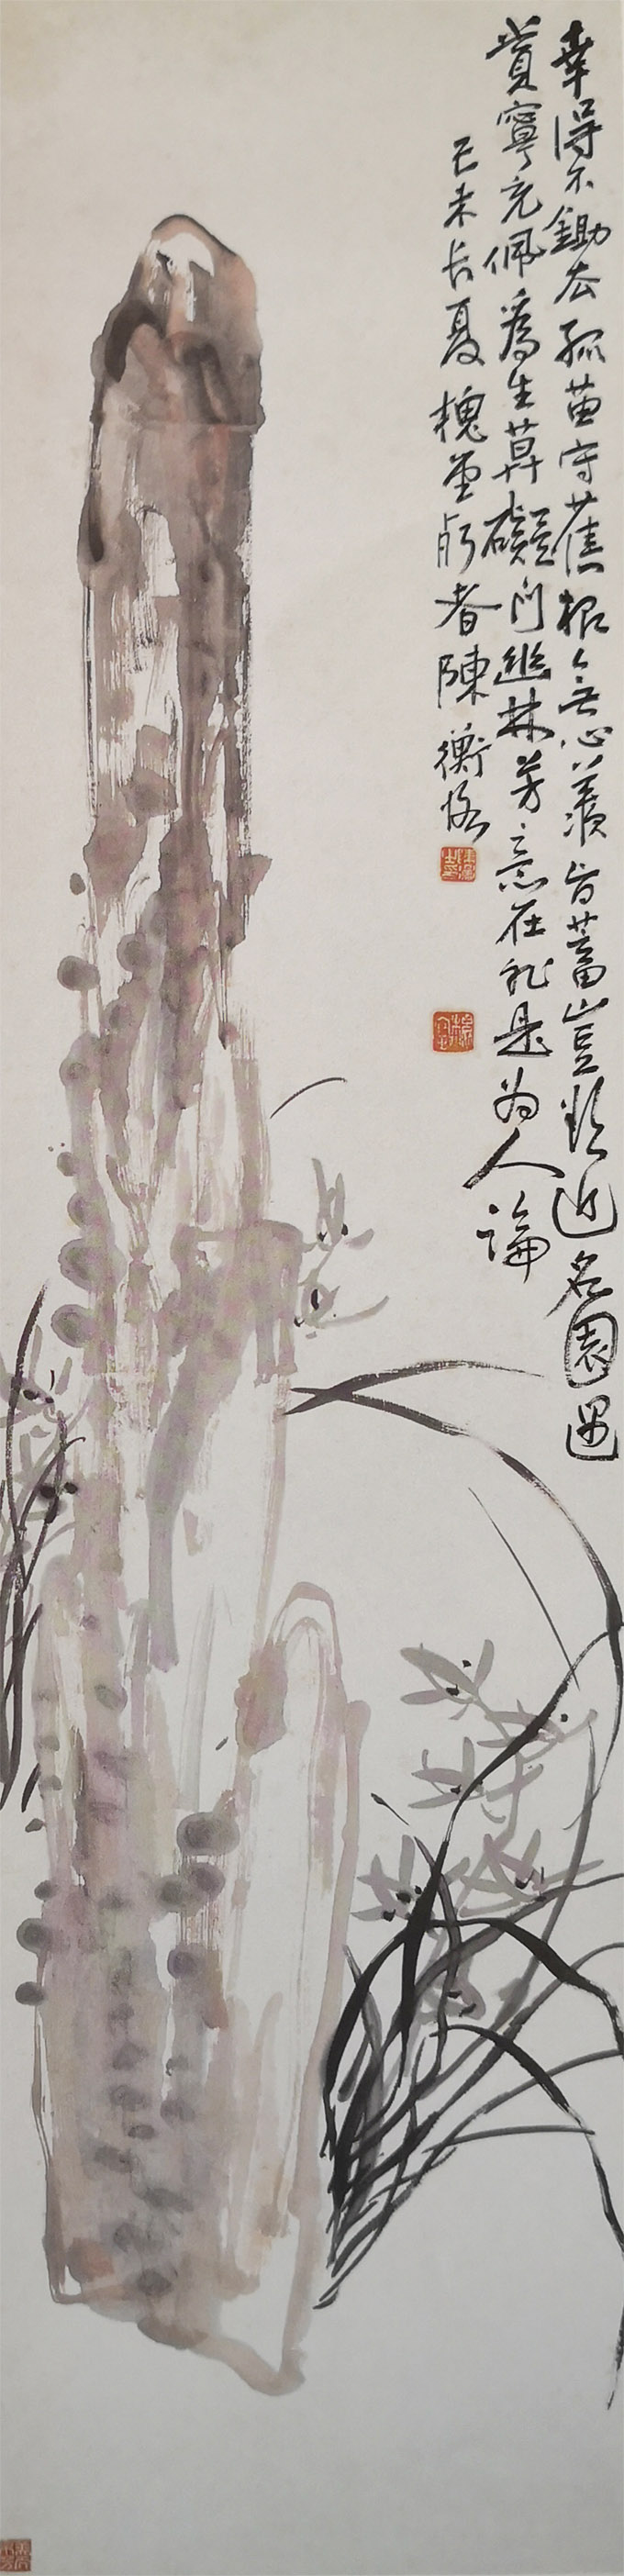 幸得不鋤去孤苗守舊根無心羨旨蓄豈欲近名園遇
賞寧充佩為生莫礙門幽林芳意在非是為人論
己未長夏槐堂朽者陳衡恪